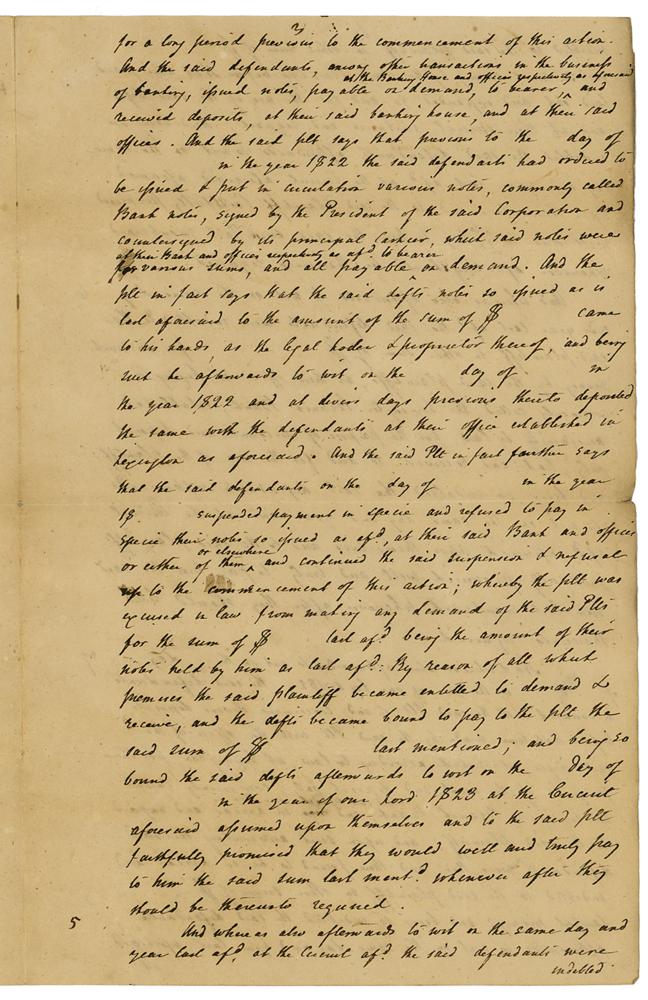 3
for a long period previous to the commencement of this action.
And the said defendants, among other transactions in the business
at the Banking House and offices respectively as aforesaid
of banking, issued notes, payable on demand, to bearer, ‸ and
received deposits, at their said banking house, and at their said
offices. And the said plt says that previous to the day of
in the year 1822 the said defendants had ordered to
be issued & put in circulation various notes, commonly called
Bank notes, signed by the President of the said Corporation and
countersigned by its principal Cashier, which said notes were
at their Bank and offices respectively as afd. to bearer
for various sums, and all payable ‸ on demand. And the
plt in fact says that the said defts notes so issued as is
last aforesaid to the amount of the sum of $ came
to his hands, as the legal holder & proprietor thereof, and being
such he afterwards to wit on the day of in
the year 1822 and at divers days previous thereto deposited
the same with the defendants at their office established in
Lexington as aforesaid. And the said Plt in fact further says
that the said defendants on the day of in the year
18 suspended payment in specie and refused to pay in
specie their notes so issued as afd, at their said Bank and offices
or elsewhere
or either of them ‸ and continued the said suspension & refusal
up to the commencement of this action; whereby the plt was
excused in law from making any demand of the said Plts
for the sum of $ last afd. being the amount of their
notes held by him as last afd: By reason of all which
premises the said plaintiff became entitled to demand &
receive, and the defts became bound to pay to the plt the
said sum of $ last mentioned; and being so
bound the said defts afterwards to wit on the day of
in the year of our Lord 1823 at the Circuit
aforesaid assumed upon themselves and to the said plt
faithfully promised that they would well and truly pay
to him the said sum last mentd. whenever after they
should be thereunto required.
5 And whereas also afterwards to wit on the same day and
year last afd, at the Circuit afd. the said defendants were
indebted